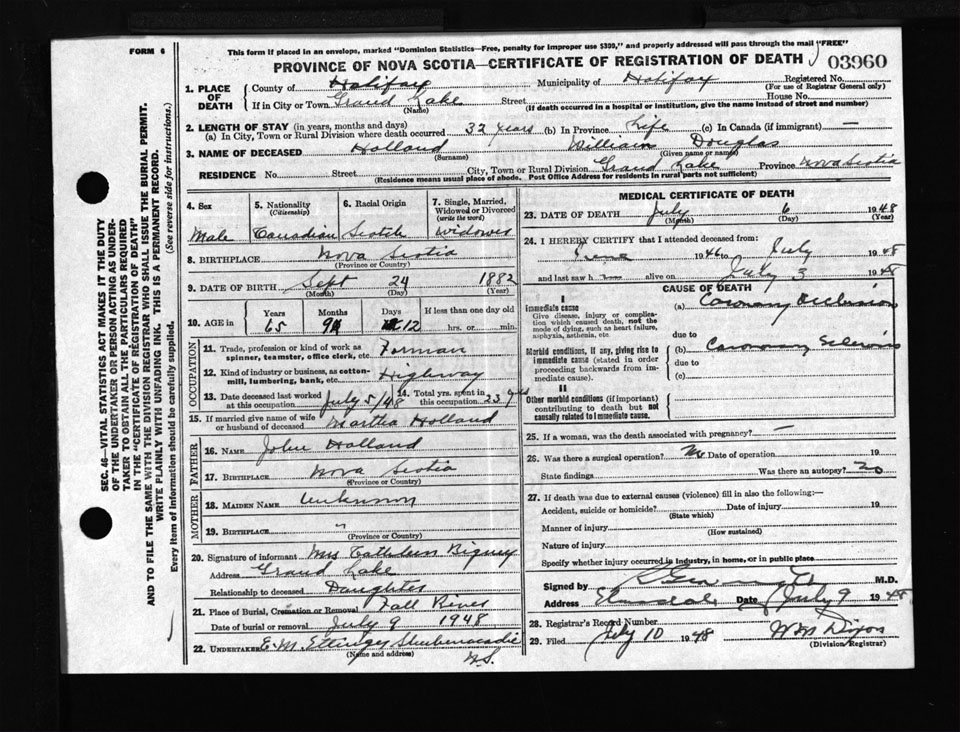 FORM 6
This form if placed in an envelope, marked "Dominion Statistics—Free, penalty for improper use $300," and properly addressed will pass through the mail "FREE"
PROVINCE OF NOVA SCOTIA—CERTIFICATE OF REGISTRATION OF DEATH 03960
1. PLACE OF DEATH
County of Halifax Municipality of Halifax Registered No.
(For use of Registrar General only)
If in City or Town Grand Lake Street House No.
(Name) (If death occurred in a hospital or institution, give the name instead of street and number)
2. LENGTH OF STAY (in years, months and days)
(a) In City, Town or Rural Division where death occurred 32 years (b) In Province Life (c) In Canada (if immigrant) —
3. NAME OF DECEASED Holland William Douglas
(Surname) (Given name or names)
RESIDENCE No. Street City, Town or Rural Division Grand Lake Province Nova Scotia
(Residence means usual place of abode. Post Office Address for residents in rural parts not sufficient)
4. Sex Male
5. Nationality (Citizenship) Canadian
6. Racial Origin Scotch
7. Single, Married, Widowed or Divorced (write the word) Widower
8. BIRTHPLACE Nova Scotia
(Province or Country)
9. DATE OF BIRTH Sept 24 1882
(Month) (Day) (Year)
10. AGE in Years Months Days If less than one day old
65 9 12 hrs. or min.
OCCUPATION
11. Trade, profession or kind of work as spinner, teamster, office clerk, etc. Forman
12. Kind of industry or business, as cotton-mill, lumbering, bank, etc. Highway
13. Date deceased last worked at this occupation July 5/48
14. Total yrs. spent in this occupation 23 yrs
15. If married give name of wife or husband of deceased Martha Holland
FATHER
16. NAME John Holland
17. BIRTHPLACE Nova Scotia
(Province or Country)
MOTHER
18. MAIDEN NAME Unknown
19. BIRTHPLACE "
(Province or Country)
20. Signature of informant Mrs Cathleen Bigney
Address Grand Lake
Relationship to deceased Daughter
21. Place of Burial, Cremation or Removal Fall River
Date of burial or removal July 9 1948
22. UNDERTAKER E. M. Ettinger Shubenacadie
(Name and address) N.S.
MEDICAL CERTIFICATE OF DEATH
23. DATE OF DEATH July 6 1948
(Month) (Day) (Year)
24. I HEREBY CERTIFY that I attended deceased from:
June 1946 to July 1948
and last saw h alive on July 3 1948
CAUSE OF DEATH
I
Immediate cause
Give disease, injury or complication which caused death, not the mode of dying, such as heart failure, asphyxia, asthenia, etc
(a) Coronary Occlusion
due to
Morbid conditions, if any, giving rise to immediate cause (stated in order proceeding backwards from immediate cause).
(b) Coronary Sclerosis
due to
(c)
II
Other morbid conditions (if important) contributing to death but not causally related to immediate cause.
25. If a woman, was the death associated with pregnancy? —
26. Was there a surgical operation? No Date of operation 19
State findings Was there an autopsy? no
27. If death was due to external causes (violence) fill in also the following:—
Accident, suicide or homicide? Date of injury 19
(State which)
Manner of injury
(How sustained)
Nature of injury
Specify whether injury occurred in industry, in home, or in public place
Signed by M.D.
Address Elmsdale Date July 9 1948
28. Registrar's Record Number
29. Filed July 10 1948 Wm Dixon
(Division Registrar)
SEC. 46—VITAL STATISTICS ACT MAKES IT THE DUTY
OF THE UNDERTAKER OR PERSON ACTING AS UNDER-
TAKER TO OBTAIN ALL THE PARTICULARS REQUIRED
IN THE "CERTIFICATE OF REGISTRATION OF DEATH"
AND TO FILE THE SAME WITH THE DIVISION REGISTRAR WHO SHALL ISSUE THE BURIAL PERMIT.
WRITE PLAINLY WITH UNFADING INK. THIS IS A PERMANENT RECORD.
Every item of information should be carefully supplied. (See reverse side for instructions.)